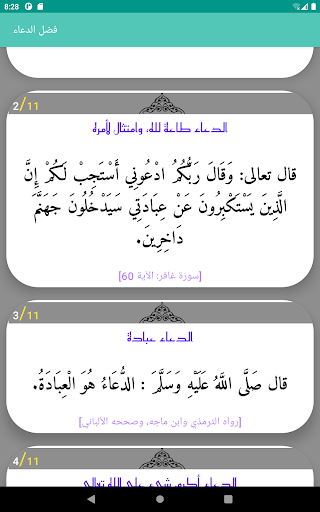 8:28
فضل الدعاء
2/11
الدعاء طاعة لله، وامتثال لأمره
قال تعالى: وَقَالَ رَبُّكُمُ ادْعُونِي أَسْتَجِبْ لَكُمْ إِنَّ
الَّذِينَ يَسْتَكْبِرُونَ عَنْ عِبَادَتِي سَيَدْخُلُونَ جَهَنَّمَ
دَاخِرِينَ.
[سورة غافر: الآية 60]
3/11
الدعاء عبادة
قال صَلَّى اللَّهُ عَلَيْهِ وَسَلَّمَ : الدُّعَاءُ هُوَ الْعِبَادَةُ.
[رواه الترمذي وابن ماجه، وصححه الألباني]
4/11
الدعاء أكرم شيء على الله تعالى